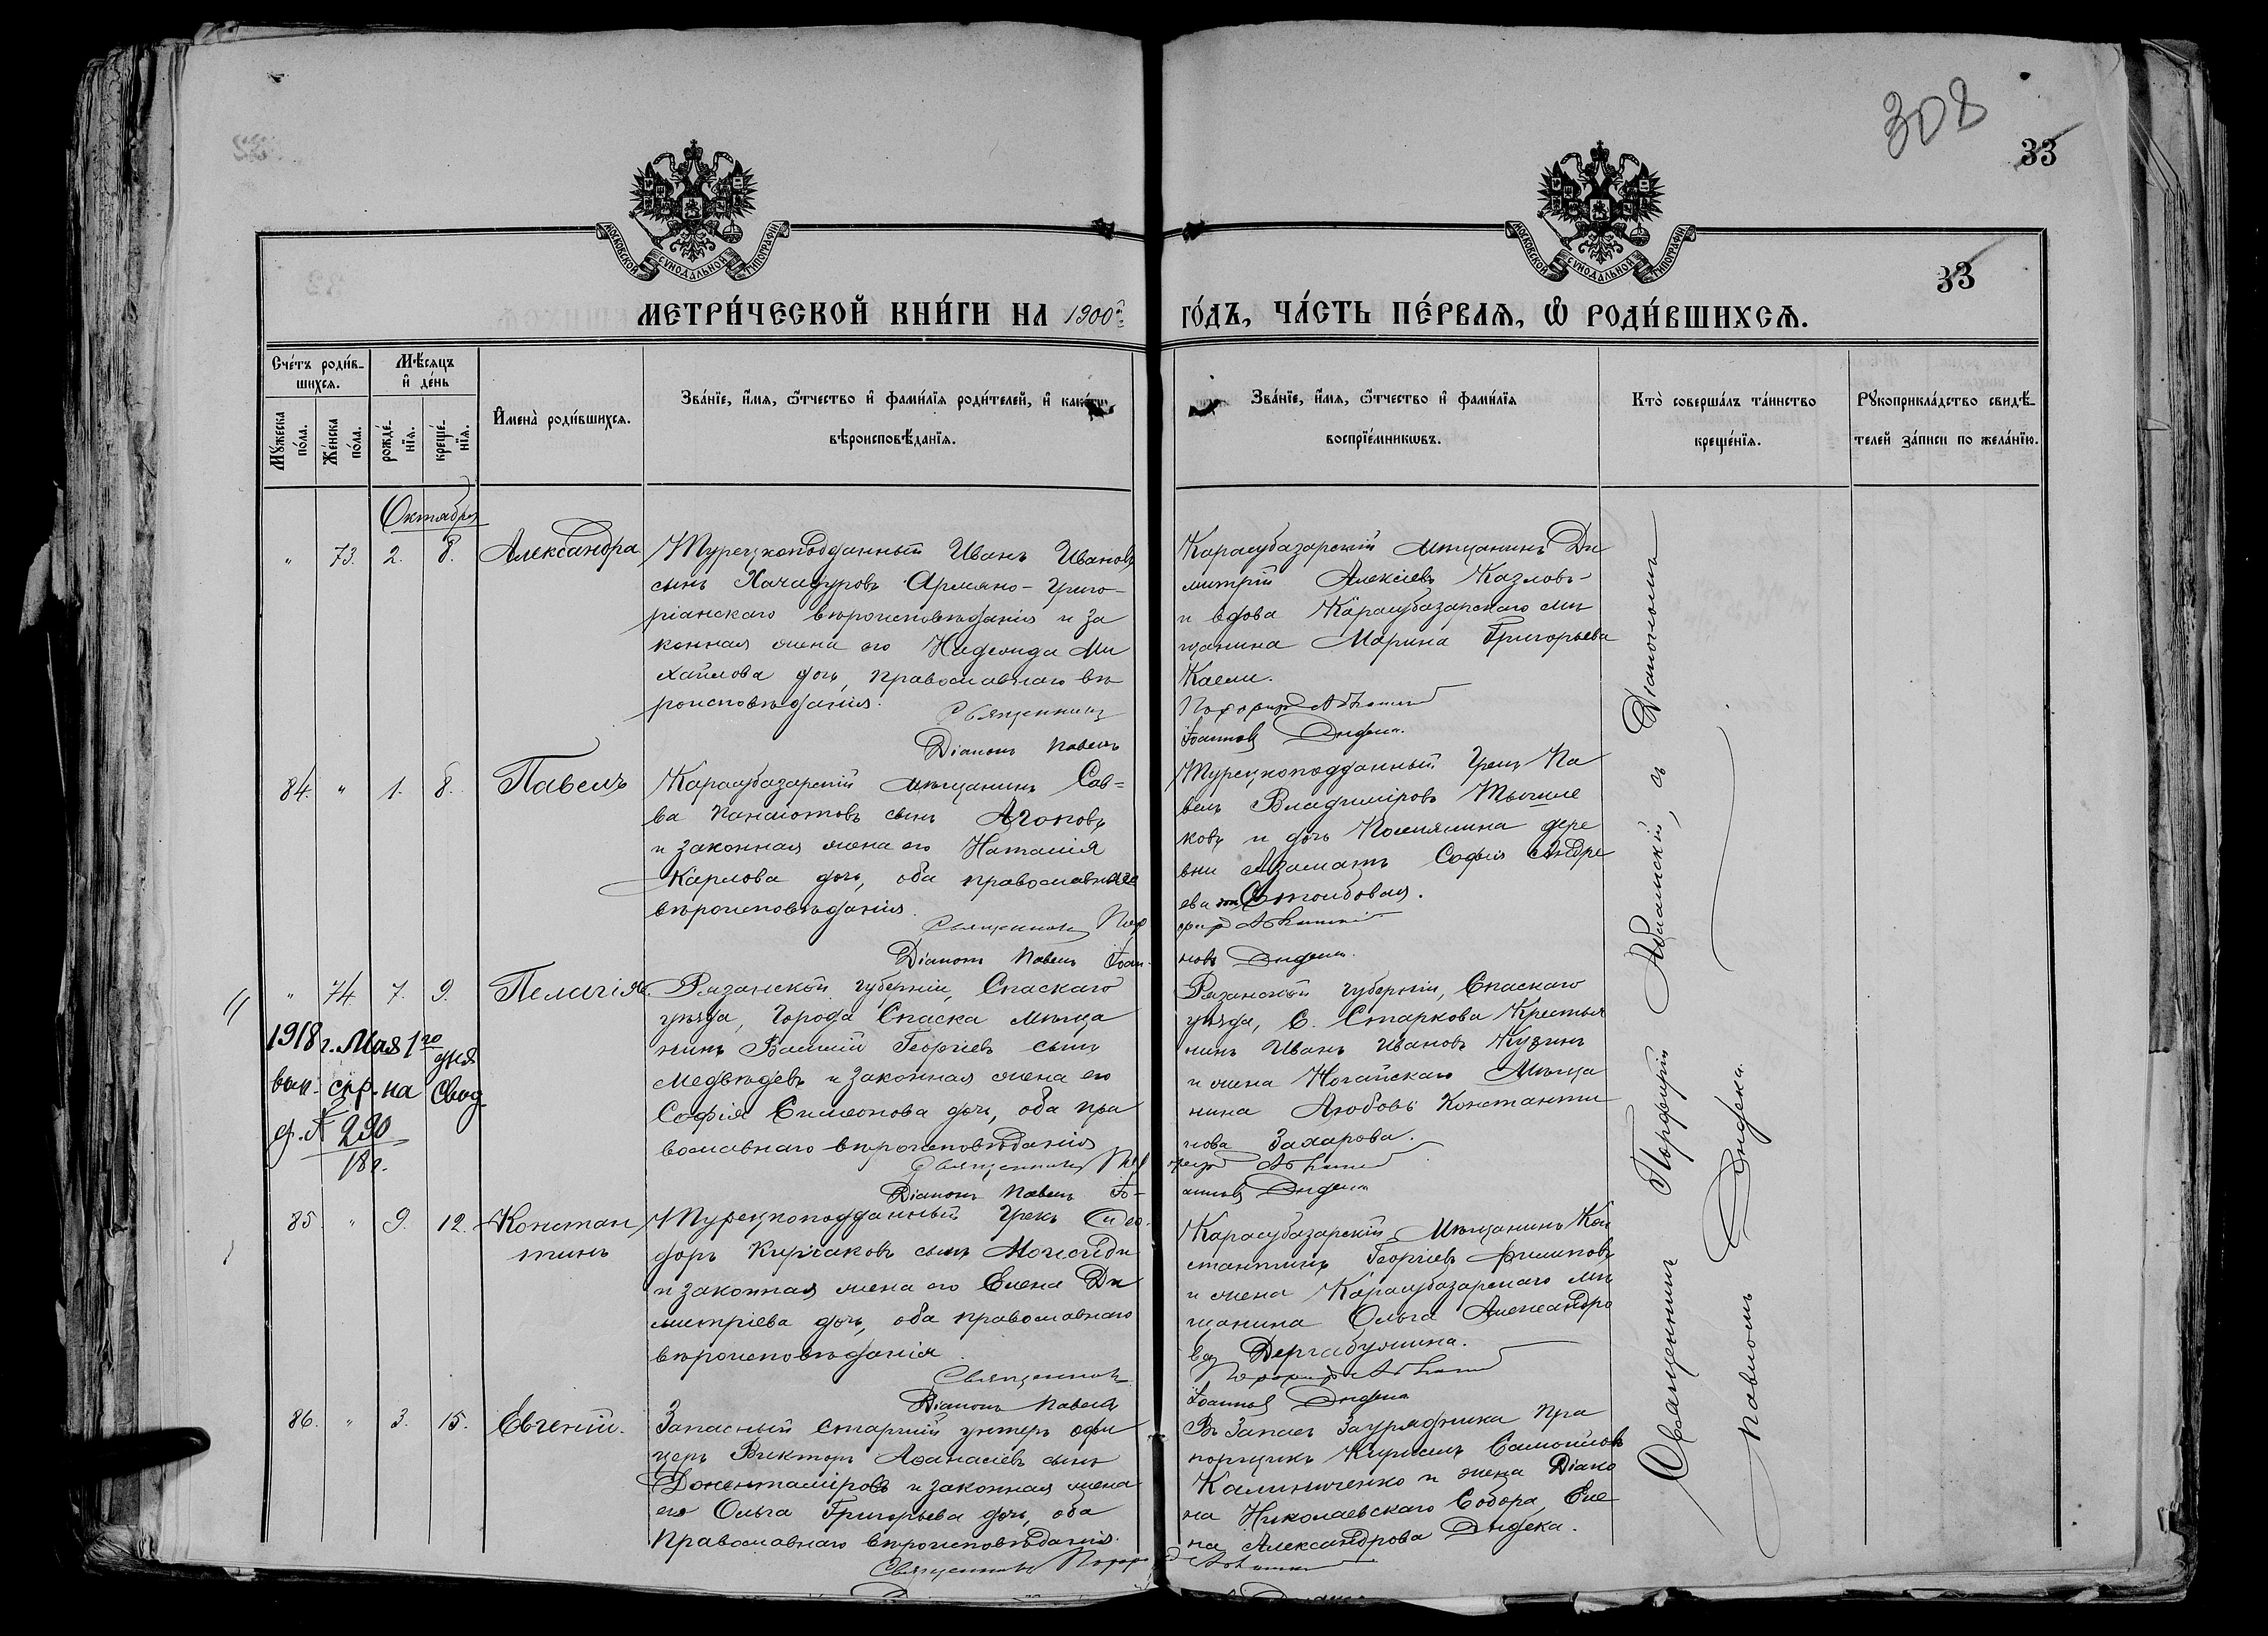 308
33
33
МОСКОВСКОЙ СѴНОДАЛЬНОЙ ТИПОГРАФІИ
МОСКОВСКОЙ СѴНОДАЛЬНОЙ ТИПОГРАФІИ
МЕТРИ́ЧЕСКОЙ КНИ́ГИ НА 1900й
ГО́ДЪ, ЧА́СТЬ ПЕ́РВАЯ, Ѽ РОДИ́ВШИХСЯ.
Сче́тъ роди́в-
шихся.
Мѣ́сяцъ
и҆ де́нь
Мꙋ́жеска
по́ла.
Же́нска
по́ла.
рожде́-
нїя.
креще́-
нїя.
И҆мена̀ роди́вшихся.
Зва́нїе, и҆́мя, ѻ҆́тчество и҆ фами́лїя роди́телей, и҆ како́гѡ
вѣроисповѣ́данїя.
Зва́нїе, и҆́мя, ѻ҆́тчество и҆ фами́лїя
воспрїе́мникѡвъ.
Кто̀ соверша́лъ та́инство
креще́нїя.
Рꙋкоприкла́дство свидѣ́-
телей за́писи по жела́нїю.
Октября
" 73. 2. 8. Александра
Турецкоподданный Иванъ Ивановъ
сынъ Хачадуровъ Армяно-Григо-
ріанскаго вѣроисповѣданія и за
конная жена его Надежда Ми
хайлова дочь, православнаго вѣ
роисповѣданія.
Священникъ
Діаконъ Павелъ
Карасубазарскій мѣщанинъ Ди
митрій Алексіевъ Казловъ
и вдова Карасубазарскаго мѣ
щанина Марина Григорьева
Іоанновъ Диджа.
84. " 1. 8. Павелъ
Карасубазарскій мѣщанинъ Сав=
ва Панаіотовъ сынъ Агоповъ
и законная жена его Наталія
Карлова дочь, оба православнаго
вѣроисповѣданія.
Священникъ Пор
Діаконъ Павелъ Іоан-
Турецкоподданный Грекъ Па
велъ Владиміровъ
ковъ и дочь Поселянина дере
вни Азаматъ Софія Андре
ева Столбовая.
новъ
" 74 7. 9. Пелагія
Рязанской губерніи, Спаскаго
уѣзда, Города Спаска Мѣща
нинъ Василій Георгіевъ сынъ
Медвѣдевъ и законная жена его
Софія Симеонова дочь, оба пра
вославнаго вѣроисповѣданія
Священникъ Пор
Діаконъ Павелъ Іо-
Рязанской губерніи, Спаскаго
уѣзда, С. Старкова Крестья
нинъ Иванъ Ивановъ Кузинъ
и жена Ногайскаго Мѣща
нина Любовь Константи
нова Захарова.
анновъ
1918 г. Мая 1го
дня
вып. спр. на Свод
230
18 г.
85. " 9. 12. Констан
тинъ
Турецкоподданный Грекъ Ѳео-
доръ Киріаковъ сынъ
и законная жена его Елена Ди
митріева дочь, оба православнаго
вѣроисповѣданія
Священникъ
Діаконъ Павелъ
Карасубазарскій Мѣщанинъ Кон
стантинъ Георгіевъ Филиповъ
и жена Карасубазарскаго мѣ
щанина Ольга Александро
ва
Іоанновъ
86. " 3. 15. Евгеній.
Запасный старшій унтеръ офи
церъ Викторъ Аѳанасіевъ сынъ
и законная жена
его Ольга Григорьева дочь, оба
Православнаго вѣроисповѣданія.
Священникъ
Въ Запасѣ Зауряднника Пра
порщикъ Кириллъ Самойловъ
Калиниченко и жена Діако
на Николаевскаго Собора, Еле
на Александрова
Священникъ Порфирій съ Діакономъ
Павломъ